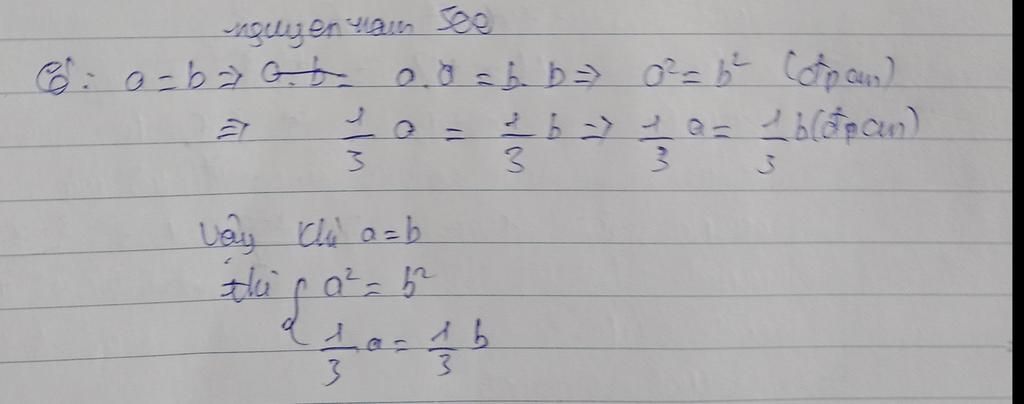 nguyennam 500
Có: a = b => a.b = a.a = b.b => a² = b² (đpcm)
=> 1/3 a = 1/3 b => 1/3 a = 1/3 b (đpcm)
Vậy khi a = b
thì { a² = b²
1/3 a = 1/3 b